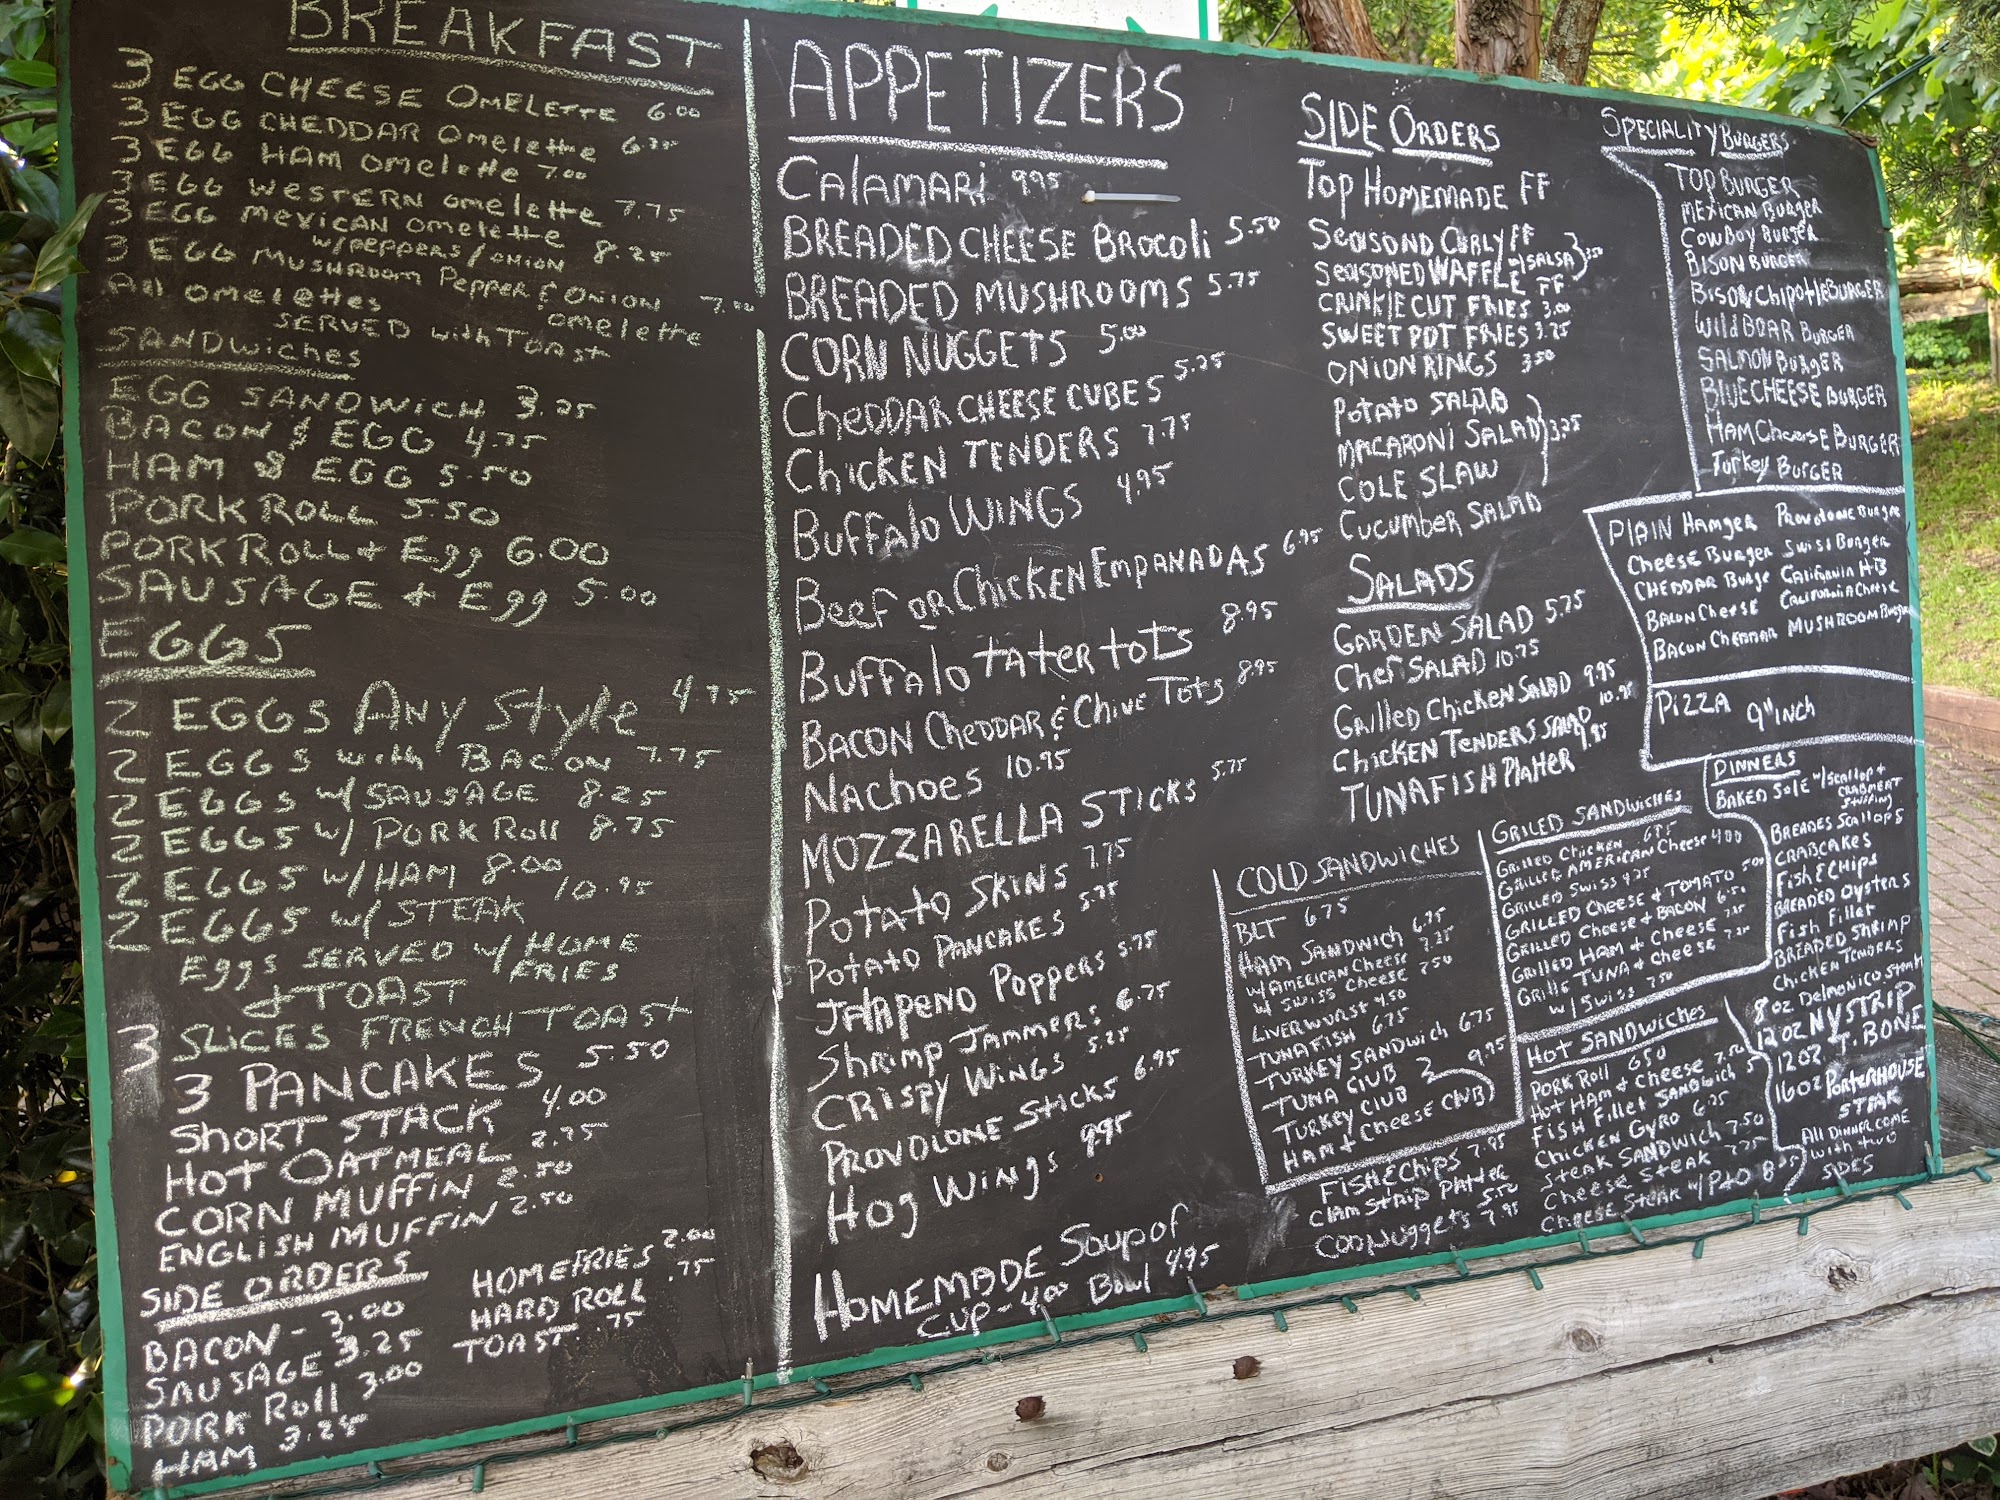 BREAKFAST
3 EGG CHEESE OMELETTE 6.00
3 EGG CHEDDAR Omelette 6.75
3 EGG HAM omelette 7.00
3 EGG WESTERN omelette 7.75
3 EGG MEXICAN omelette
w/PEPPERS/ONION 8.25
3 EGG MUSHROOM Pepper & ONION 7.00
omelette
All omelettes
SERVED with TOAST
SANDWiches
EGG SANDWiCH 3.25
BACON & EGG 4.75
HAM & EGG 5.50
PORK ROLL 5.50
PORK ROLL + Egg 6.00
SAUSAGE + Egg 5.00
EGGS
2 EGGS ANY Style 4.75
2 EGGS with BACON 7.75
2 EGGS w/ SAUSAGE 8.25
2 EGGS w/ PORK Roll 8.75
2 EGGS w/ HAM 8.00
2 EGGS w/ STEAK 10.95
Eggs SERVED w/ HOME
FRIES
& TOAST
3 SLICES FRENCH TOAST
3 PANCAKES 5.50
SHORT STACK 4.00
HOT OATMEAL 2.75
CORN MUFFIN 2.50
ENGLISH MUFFIN 2.50
SIDE ORDERS
BACON - 3.00
SAUSAGE 3.25
PORK Roll 3.00
HAM 3.25
HOMEFRIES 2.00
HARD ROLL .75
TOAST .75
APPETIZERS
CALAMARI 9.95
BREADED CHEESE BROCOLI 5.50
BREADED MUSHROOMS 5.75
CORN NUGGETS 5.00
CHEDDAR CHEESE CUBES 5.25
CHICKEN TENDERS 7.75
BUFFALO WINGS 4.95
Beef OR CHICKEN EMPANADAS 6.95
BUFFALO TATER TOTS 8.95
BACON CHEDDAR & CHIVE TOTS 8.95
NACHOES 10.95
MOZZARELLA STICKS 5.75
POTATO SKINS 7.75
POTATO PANCAKES 5.75
JALAPENO POPPERS 5.75
SHRIMP JAMMERS 6.75
CRISPY WINGS 5.25
PROVOLONE STICKS 6.95
HOG WINGS 9.95
HOMEMADE Soup of
CUP - 4.00 Bowl 4.95
SIDE ORDERS
TOP HOMEMADE FF
SEASOND CURLY FF
SEASONED WAFFLE FF w/SALSA 3.50
CRINKLE CUT FRIES 3.00
SWEET POT FRIES 3.25
ONION RINGS 3.50
POTATO SALAD
MACARONI SALAD 3.25
COLE SLAW
CUCUMBER SALAD
SALADS
GARDEN SALAD 5.75
Chef SALAD 10.75
Grilled Chicken SALAD 9.95
Chicken TENDERS SALAD 10.95
TUNAFISH Platter 9.95
COLD SANDWICHES
BLT 6.75
HAM SANDWICH 6.75
W/AMERICAN Cheese 7.25
W/ SWISS Cheese 7.50
LIVERWURST 4.50
TUNAFISH 6.75
TURKEY SANDWICH 6.75
TUNA CLUB
TURKEY CLUB 9.95
HAM + Cheese CLUB
FISH & Chips 7.95
CLAM STRIP Platter
COD Nuggets 7.95
GRILED SANDWICHES
GRilled Chicken 6.75
GRILLED AMERICAN Cheese 4.00
GRILLED SWISS 4.25
GRILLED Cheese & TOMATO 5.00
GRILLED Cheese & BACON 6.50
GRILLED HAM & Cheese 7.25
GRILLE TUNA & Cheese 7.25
W/ Swiss 7.50
HOT SANDWICHES
PORK Roll 6.50
HOT HAM & Cheese 7.50
FISH Fillet SANDWICH
CHICKEN GYRO 6.75
STEAK SANDWICH 7.50
Cheese STEAK 7.75
CHEESE STEAK w/ P&O
SPECIALITY BURGERS
TOP BURGER
MEXICAN BURGER
COWBOY BURGER
BISON BURGER
BISON Chipotle BURGER
Wild BOAR BURGER
SALMON BURGER
BLUECHEESE BURGER
HAM Cheese BURGER
Turkey BURGER
PLAIN HAMGER
Cheese BURGER
CHEDDAR BURGE
BACON CHEESE
BACON CHEDDAR
PROVOLONE BURGER
SWISS BURGER
CALIFORNIA HB
CALIFORNIA Cheese
MUSHROOM BURGER
PIZZA 9" INCH
DINNERS
BAKED SOLE w/ Scallop &
CRABMEAT
STUFFING
BREADES SCALLOPS
CRABCAKES
FISH & CHIPS
BREADED OYSTERS
FISH Fillet
BREADED SHRIMP
CHICKEN TENDERS
8 oz Delmonico Steak
12 OZ NY STRIP
12 OZ T. BONE
16 OZ PORTERHOUSE
STEAK
All DINNER COME
with two
SIDES